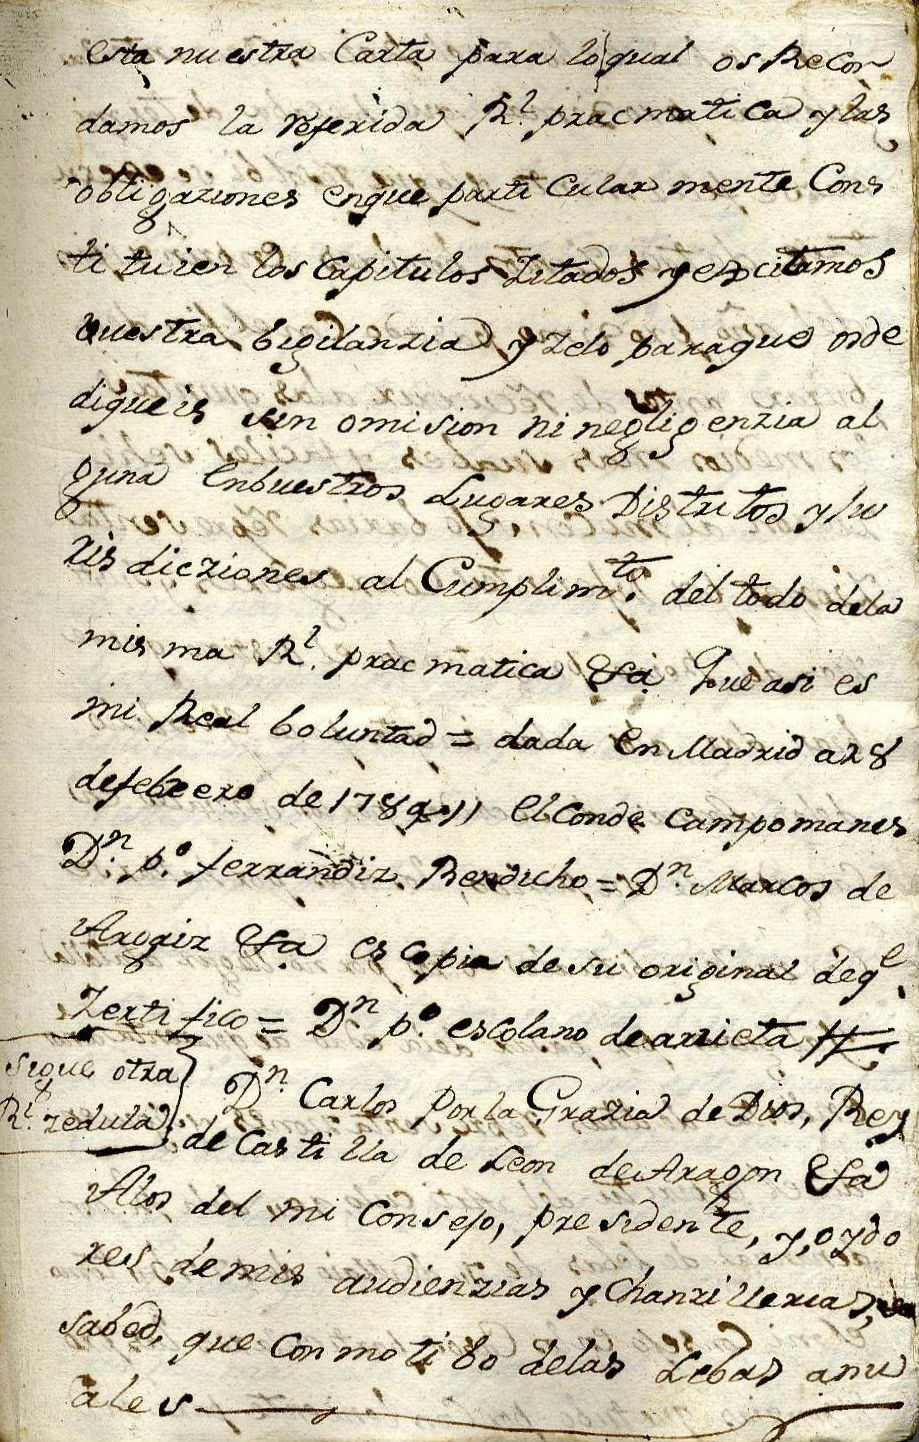 esta nuestra Carta para lo qual os Recor
damos la referida Rl. pracmatica y las
obligaziones enque parti Cular mente Cons
ti tuien los Capitulos Zitados y excitamos
vuestra bigilanzia y zelo paraque os de
diqueis sin omision ni negligenzia al
guna Enbuestros Lugares Distritos y Ju
ris dicziones al Cumplimto. del todo dela
mis ma Rl. pracmatica &a. Que asi es
mi Real boluntad = dada En Madrid a 28
defebrero de 1789 // El Conde Campomanes
Dn. po. ferrandiz Bendicho = Dn. Marcos de
Argaiz &a es copia de su original de qe.
Zerti fico = Dn po. escolano de arrieta //
sigue otra
Rl. zedula
Dn. Carlos Porla Grazia de Dios, Rey
de Casti lla de Leon de Aragon &a
Alos del mi Consejo, presidente, y, oydo
res de mis audienzias y Chanzillerias,
sabed, que Con moti bo delas Lebas anu
ales